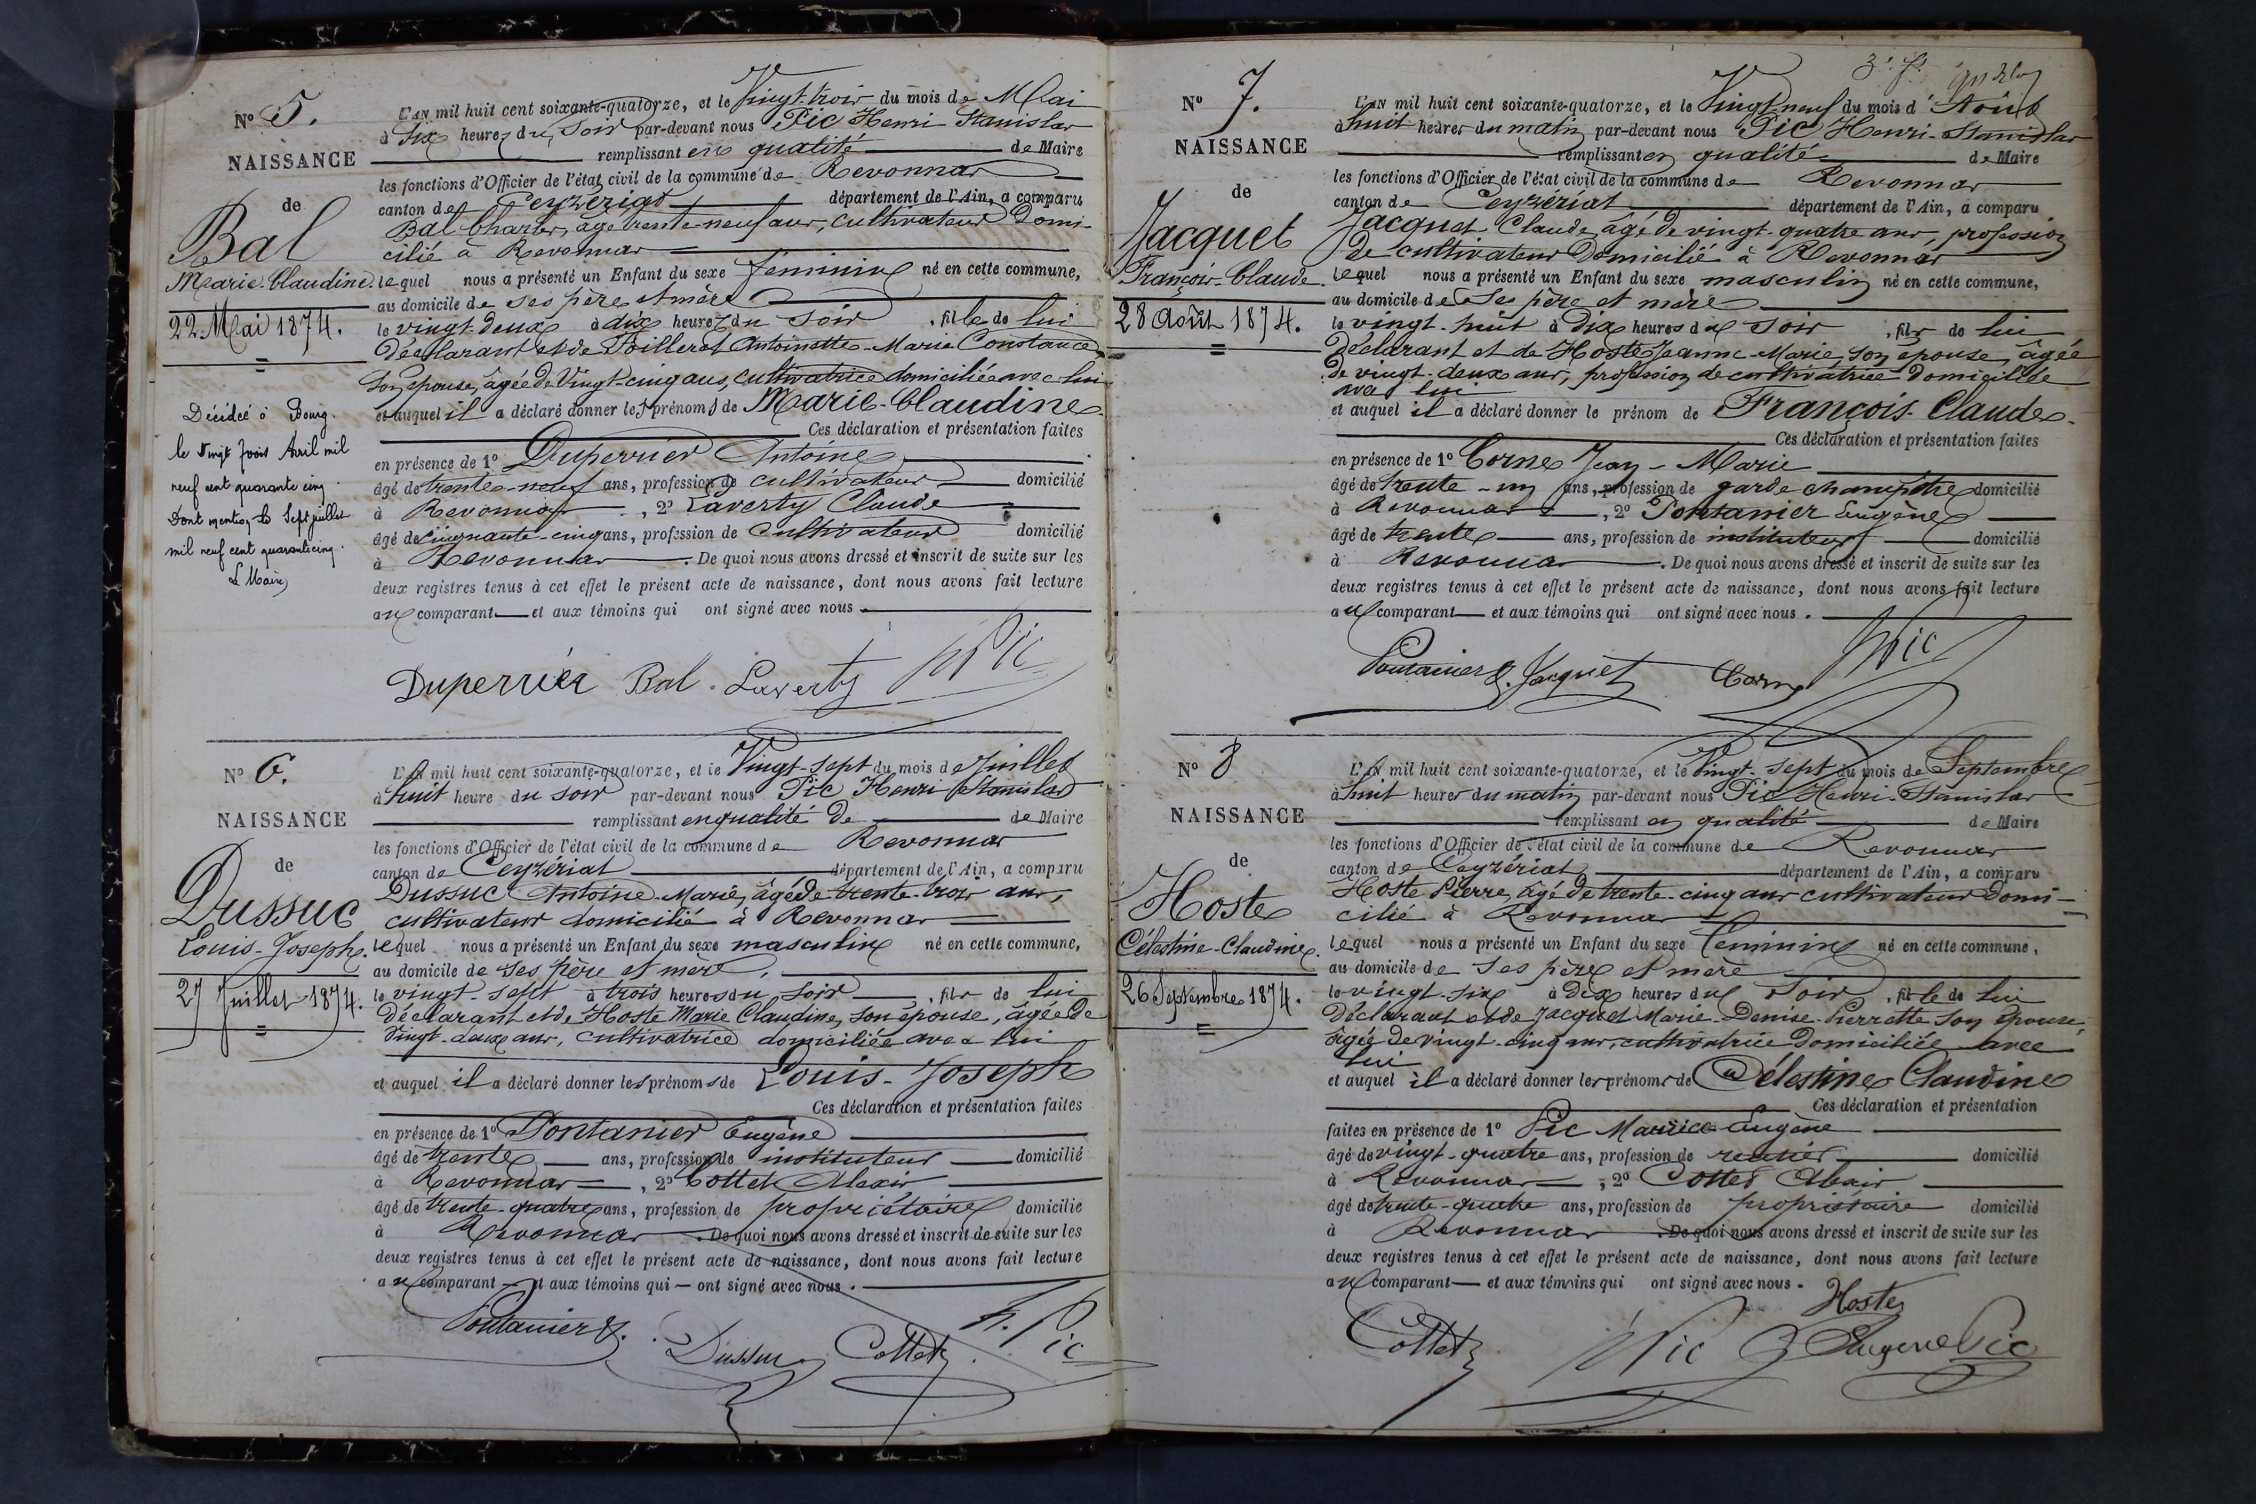 Nº 5.
NAISSANCE
de
Bal
Marie-Claudine.
22 Mai 1874.
Décidcé à Bourg.
le vingt trois Avril mil
neuf cent quarante cinq.
Dont mention le Sept juillet
mil neuf cent quarante cinq.
Le Maire,
L'AN mil huit cent soixante-quatorze, et le Vingt-trois du mois de Mai
à Six heures du Soir par-devant nous Pic Henri Stanislas
remplissant en qualité de Maire
les fonctions d'Officier de l'état civil de la commune de Revonnas
canton de Ceyzériat département de l'Ain, a comparu
Bal Charles, âgé trente-neuf ans, cultivateur Domi-
cilié à Revonnas
lequel nous a présenté un Enfant du sexe féminin né en cette commune,
au domicile de ses père et mère
le vingt-deux à dix heures du Soir, fille de lui
Déclarant et de Poilleret Antoinette-Marie Constance,
Son épouse, âgée de Vingt-cinq ans, cultivatrice domiciliée avec lui
et auquel il a déclaré donner les prénoms de Marie-Claudine
Ces déclaration et présentation faites
en présence de 1º Duperrier Antoine
âgé de trente-neuf ans, profession de cultivateur domicilié
à Revonnas, 2º Laverty Claude
âgé de Cinquante-cinq ans, profession de cultivateur domicilié
à Revonnas. De quoi nous avons dressé et inscrit de suite sur les
deux registres tenus à cet effet le présent acte de naissance, dont nous avons fait lecture
au comparant et aux témoins qui ont signé avec nous.
Duperrier Bal. Laverty H Pic
Nº 6.
NAISSANCE
de
Dussuc
Louis-Joseph.
27 Juillet 1874.
L'AN mil huit cent soixante-quatorze, et le Vingt-sept du mois de Juillet
à huit heure du soir par-devant nous Pic Henri Stanislas
remplissant en qualité de de Maire
les fonctions d'Officier de l'état civil de la commune de Revonnas
canton de Ceyzériat département de l'Ain, a comparu
Dussuc Antoine-Marie, âgé de trente-trois ans,
cultivateur domicilié à Revonnas
lequel nous a présenté un Enfant du sexe masculin né en cette commune,
au domicile de ses père et mère,
le vingt-sept à trois heures du soir, fils de lui
Déclarant et de Hoste Marie Claudine, son épouse, âgée de
Vingt-deux ans, cultivatrice domiciliée avec lui
et auquel il a déclaré donner les prénoms de Louis-Joseph
Ces déclaration et présentation faites
en présence de 1º Pontanier Eugène
âgé de trente ans, profession de instituteur domicilié
à Revonnas, 2º Cottet Alexis
âgé de trente-quatre ans, profession de propriétaire domicilié
à Revonnas. De quoi nous avons dressé et inscrit de suite sur les
deux registres tenus à cet effet le présent acte de naissance, dont nous avons fait lecture
au comparant et aux témoins qui ont signé avec nous.
Pontanier E. Dussuc Cottet H. Pic
Nº 7.
NAISSANCE
de
Jacquet
François-Claude.
28 Août 1874.
L'AN mil huit cent soixante-quatorze, et le Vingt-neuf du mois d'Août
à huit heures du matin par-devant nous Pic Henri-Stanislas
remplissant en qualité de Maire
les fonctions d'Officier de l'état civil de la commune de Revonnas
canton de Ceyzériat département de l'Ain, a comparu
Jacquet Claude, âgé de vingt-quatre ans, profession
de cultivateur Domicilié à Revonnas
lequel nous a présenté un Enfant du sexe masculin né en cette commune,
au domicile de Ses père et mère
le vingt-huit à Dix heures du soir, fils de lui
Déclarant et de Hoste Jeanne-Marie, son épouse, âgée
de vingt-deux ans, profession de cultivatrice Domiciliée
avec lui
et auquel il a déclaré donner le prénom de François-Claude.
Ces déclaration et présentation faites
en présence de 1º Corne Jean-Marie
âgé de trente-un ans, profession de garde champêtre domicilié
à Revonnas, 2º Pontanier Eugène
âgé de trente ans, profession de instituteur domicilié
à Revonnas. De quoi nous avons dressé et inscrit de suite sur les
deux registres tenus à cet effet le présent acte de naissance, dont nous avons fait lecture
au comparant et aux témoins qui ont signé avec nous.
Pontanier E. Jacquet Corne H Pic
Nº 8
NAISSANCE
de
Hoste
Célestine-Claudine.
26 Septembre 1874.
L'AN mil huit cent soixante-quatorze, et le Vingt-sept du mois de Septembre
à huit heures du matin par-devant nous Pic Henri-Stanislas
remplissant en qualité de Maire
les fonctions d'Officier de l'état civil de la commune de Revonnas
canton de Ceyzériat département de l'Ain, a comparu
Hoste Pierre, âgé de trente-cinq ans cultivateur Domi-
cilié à Revonnas
lequel nous a présenté un Enfant du sexe féminin né en cette commune,
au domicile de Ses père et mère
le vingt-six à Dix heures du Soir, fille de lui
Déclarant et de Jacquet Marie-Denise-Pierrette son épouse,
âgée de vingt-cinq ans, cultivatrice Domiciliée avec
lui
et auquel il a déclaré donner les prénoms de Célestine Claudine
Ces déclaration et présentation
faites en présence de 1º Pic Maurice-Eugène
âgé de vingt-quatre ans, profession de rentier domicilié
à Revonnas, 2º Cottet Alexis
âgé de trente-quatre ans, profession de propriétaire domicilié
à Revonnas. De quoi nous avons dressé et inscrit de suite sur les
deux registres tenus à cet effet le présent acte de naissance, dont nous avons fait lecture
au comparant et aux témoins qui ont signé avec nous.
Hoste
Cottet H Pic Eugene Pic